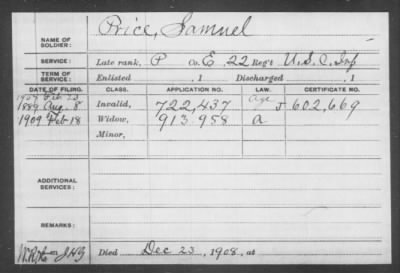 NAME OF SOLDIER: Price, Samuel
SERVICE: Late rank, P Co. E, 22 Reg't U.S.C. Inf
TERM OF SERVICE: Enlisted , 1 Discharged , 1
DATE OF FILING. CLASS. APPLICATION NO. LAW. CERTIFICATE NO.
1907 Feb 23 Age
1889 Aug. 8 Invalid, 722,437 J 602,669
1909 Feb 18 Widow, 913 958 a
Minor,
ADDITIONAL SERVICES:
REMARKS:
Died Dec 23, 1908, at